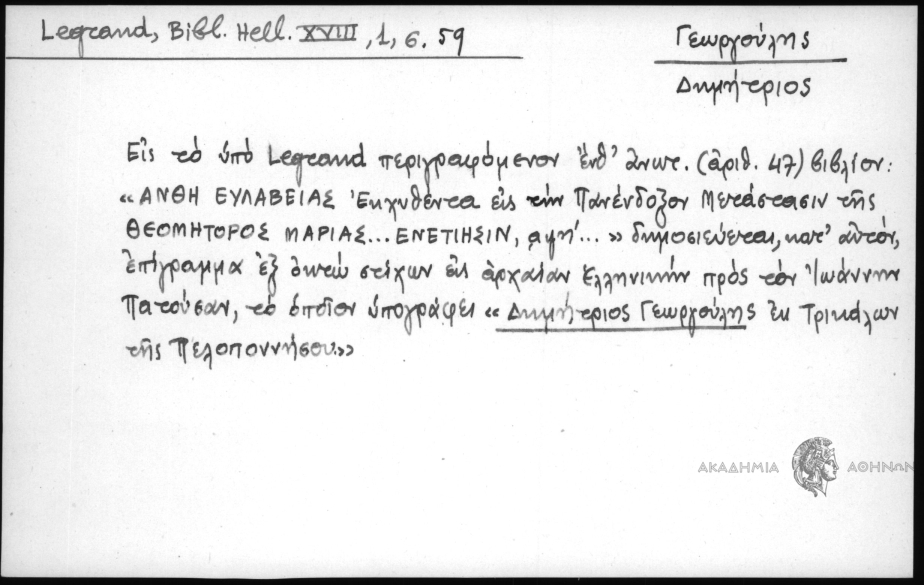 Legrand, Bibl. Hell. XVIII, 1, σ. 59
Γεωργούλης
Δημήτριος
Εἰς τὸ ὑπὸ Legrand περιγραφόμενον ἐνθ' ἀνωτ. (ἀριθ. 47) βιβλίον:
«ΑΝΘΗ ΕΥΛΑΒΕΙΑΣ Ἐκχυθέντα εἰς τὴν Πανένδοξον Μετάστασιν τῆς
ΘΕΟΜΗΤΟΡΟΣ ΜΑΡΙΑΣ... ΕΝΕΤΙΗΣΙΝ, αψη'...» δημοσιεύεται, κατ' αὐτόν,
ἐπίγραμμα ἐξ ὀκτὼ στίχων εἰς ἀρχαίαν ἑλληνικὴν πρὸς τὸν Ἰωάννην
Πατούσαν, τὸ ὁποῖον ὑπογράφει «Δημήτριος Γεωργούλης ἐκ Τρικάλων
τῆς Πελοποννήσου»
ΑΚΑΔΗΜΙΑ ΑΘΗΝΩΝ